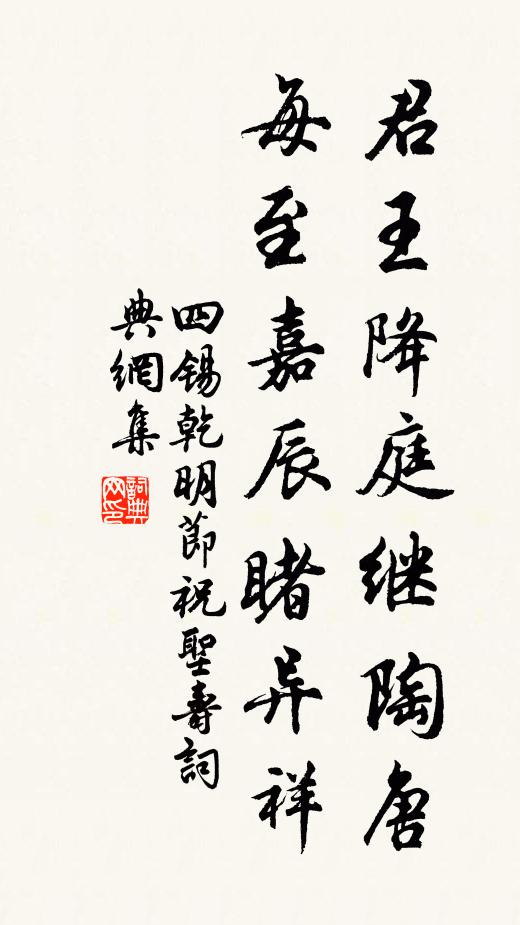 君王降庭继陶唐
每至嘉辰睹异祥
四锡乾明节祝聖壽詞
典網集
詞典網印